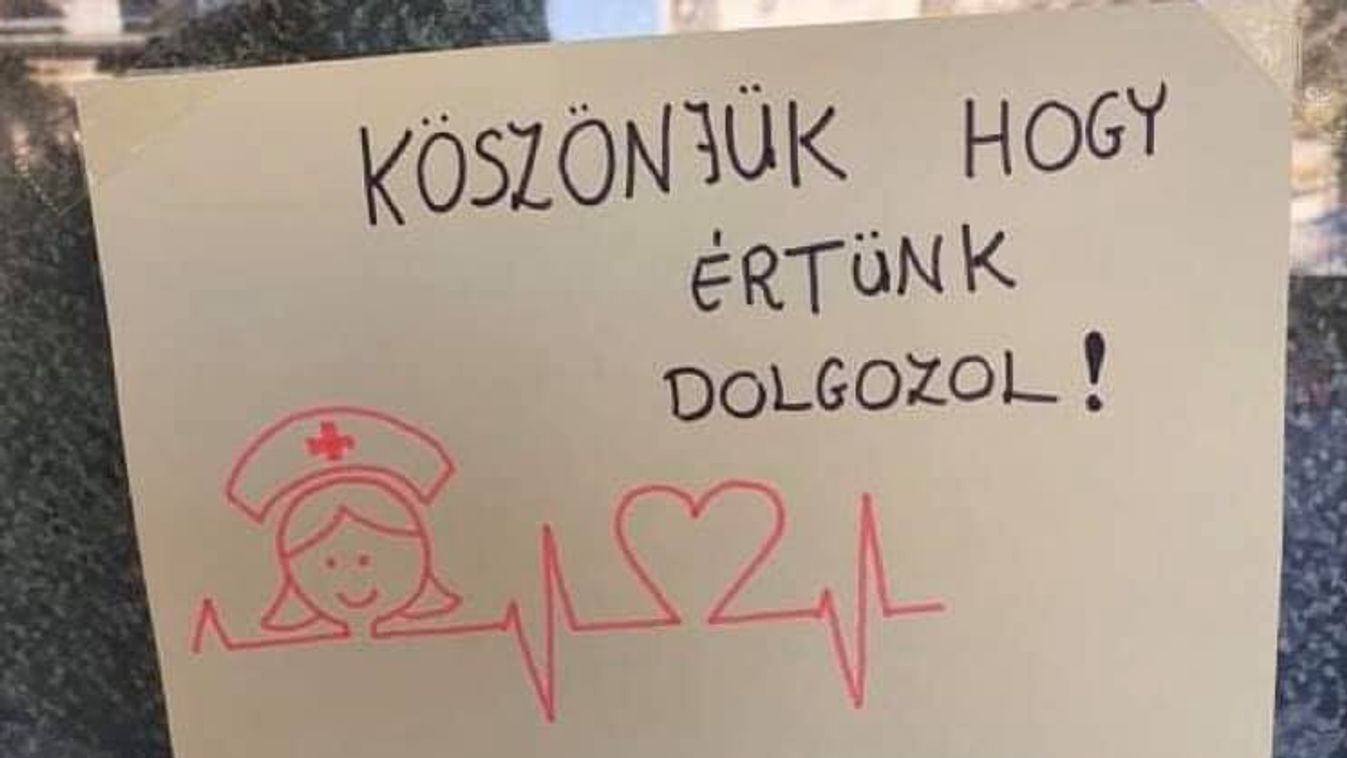 KÖSZÖNJÜK HOGY
ÉRTÜNK
DOLGOZOL!